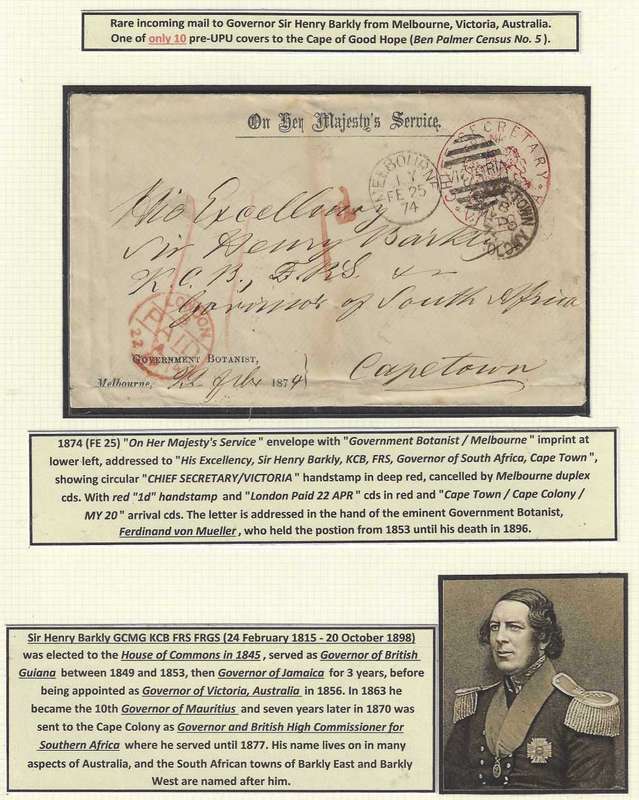 Rare incoming mail to Governor Sir Henry Barkly from Melbourne, Victoria, Australia.
One of only 10 pre-UPU covers to the Cape of Good Hope (Ben Palmer Census No. 5 ).
On Her Majesty's Service.
CHIEF SECRETARY
VICTORIA
MELBOURNE
FE 25
74
His Excellency
Sir Henry Barkly
K.C.B., F.R.S. &
Governor of South Africa
Capetown
LONDON
PAID
22
GOVERNMENT BOTANIST,
Melbourne, 1874
1874 (FE 25) "On Her Majesty's Service" envelope with "Government Botanist / Melbourne" imprint at
lower left, addressed to "His Excellency, Sir Henry Barkly, KCB, FRS, Governor of South Africa, Cape Town",
showing circular "CHIEF SECRETARY/VICTORIA" handstamp in deep red, cancelled by Melbourne duplex
cds. With red "1d" handstamp and "London Paid 22 APR" cds in red and "Cape Town / Cape Colony /
MY 20" arrival cds. The letter is addressed in the hand of the eminent Government Botanist,
Ferdinand von Mueller, who held the postion from 1853 until his death in 1896.
Sir Henry Barkly GCMG KCB FRS FRGS (24 February 1815 - 20 October 1898)
was elected to the House of Commons in 1845, served as Governor of British
Guiana between 1849 and 1853, then Governor of Jamaica for 3 years, before
being appointed as Governor of Victoria, Australia in 1856. In 1863 he
became the 10th Governor of Mauritius and seven years later in 1870 was
sent to the Cape Colony as Governor and British High Commissioner for
Southern Africa where he served until 1877. His name lives on in many
aspects of Australia, and the South African towns of Barkly East and Barkly
West are named after him.